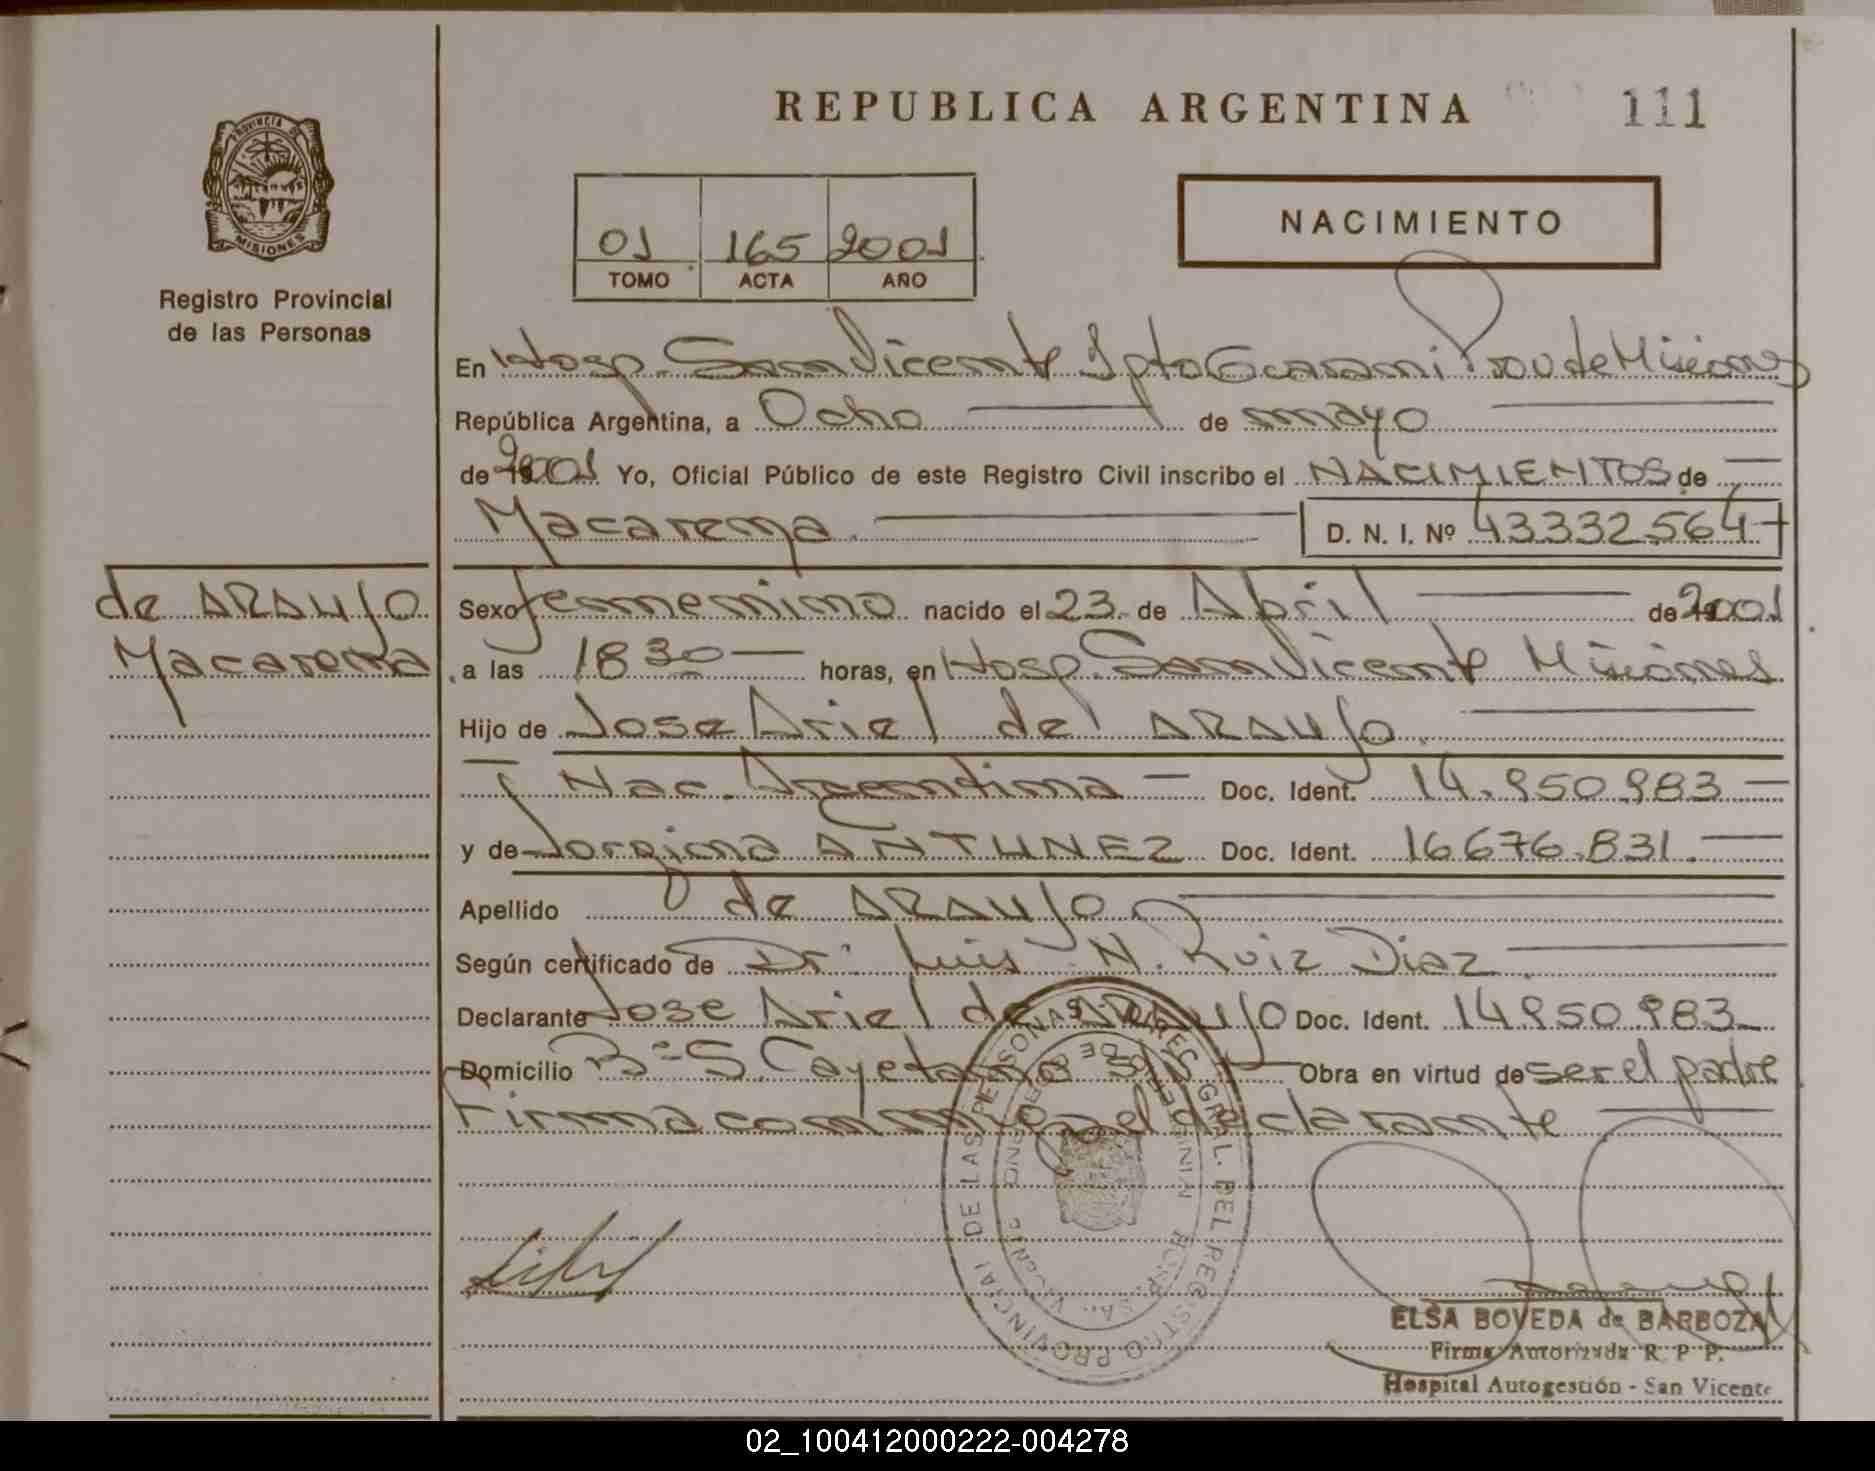 REPUBLICA ARGENTINA
111
PROVINCIA DE
MISIONES
Registro Provincial
de las Personas
01 165 2001
TOMO ACTA AÑO
NACIMIENTO
En Hosp. San Vicente Dpto Guarani Prov de Misiones
República Argentina, a Ocho de mayo
de 2001 Yo, Oficial Público de este Registro Civil inscribo el NACIMIENTOS de
Macarena D. N. I. Nº 43332564
de ARAUJO
Macarena
Sexo femenino nacido el 23 de Abril de 2001
a las 18 30 horas, en Hosp. San Vicente Misiones
Hijo de Jose Ariel de ARAUJO
Nac. Argentina Doc. Ident. 14.950.983
y de Jorgina ANTUNEZ Doc. Ident. 16676.831.
Apellido de ARAUJO
Según certificado de Dr. Luis N. Ruiz Diaz
Declarante Jose Ariel de ARAUJO Doc. Ident. 14950.983
Domicilio Bº S. Cayetano S/N Obra en virtud de ser el padre
Firma conmigo el declarante
DIREC. GRAL. DEL REGISTRO PROVINCIAL DE LAS PERSONAS
ELSA BOVEDA de BARBOZA
Firma Autorizada R. P. P.
Hospital Autogestión - San Vicente
02_100412000222-004278